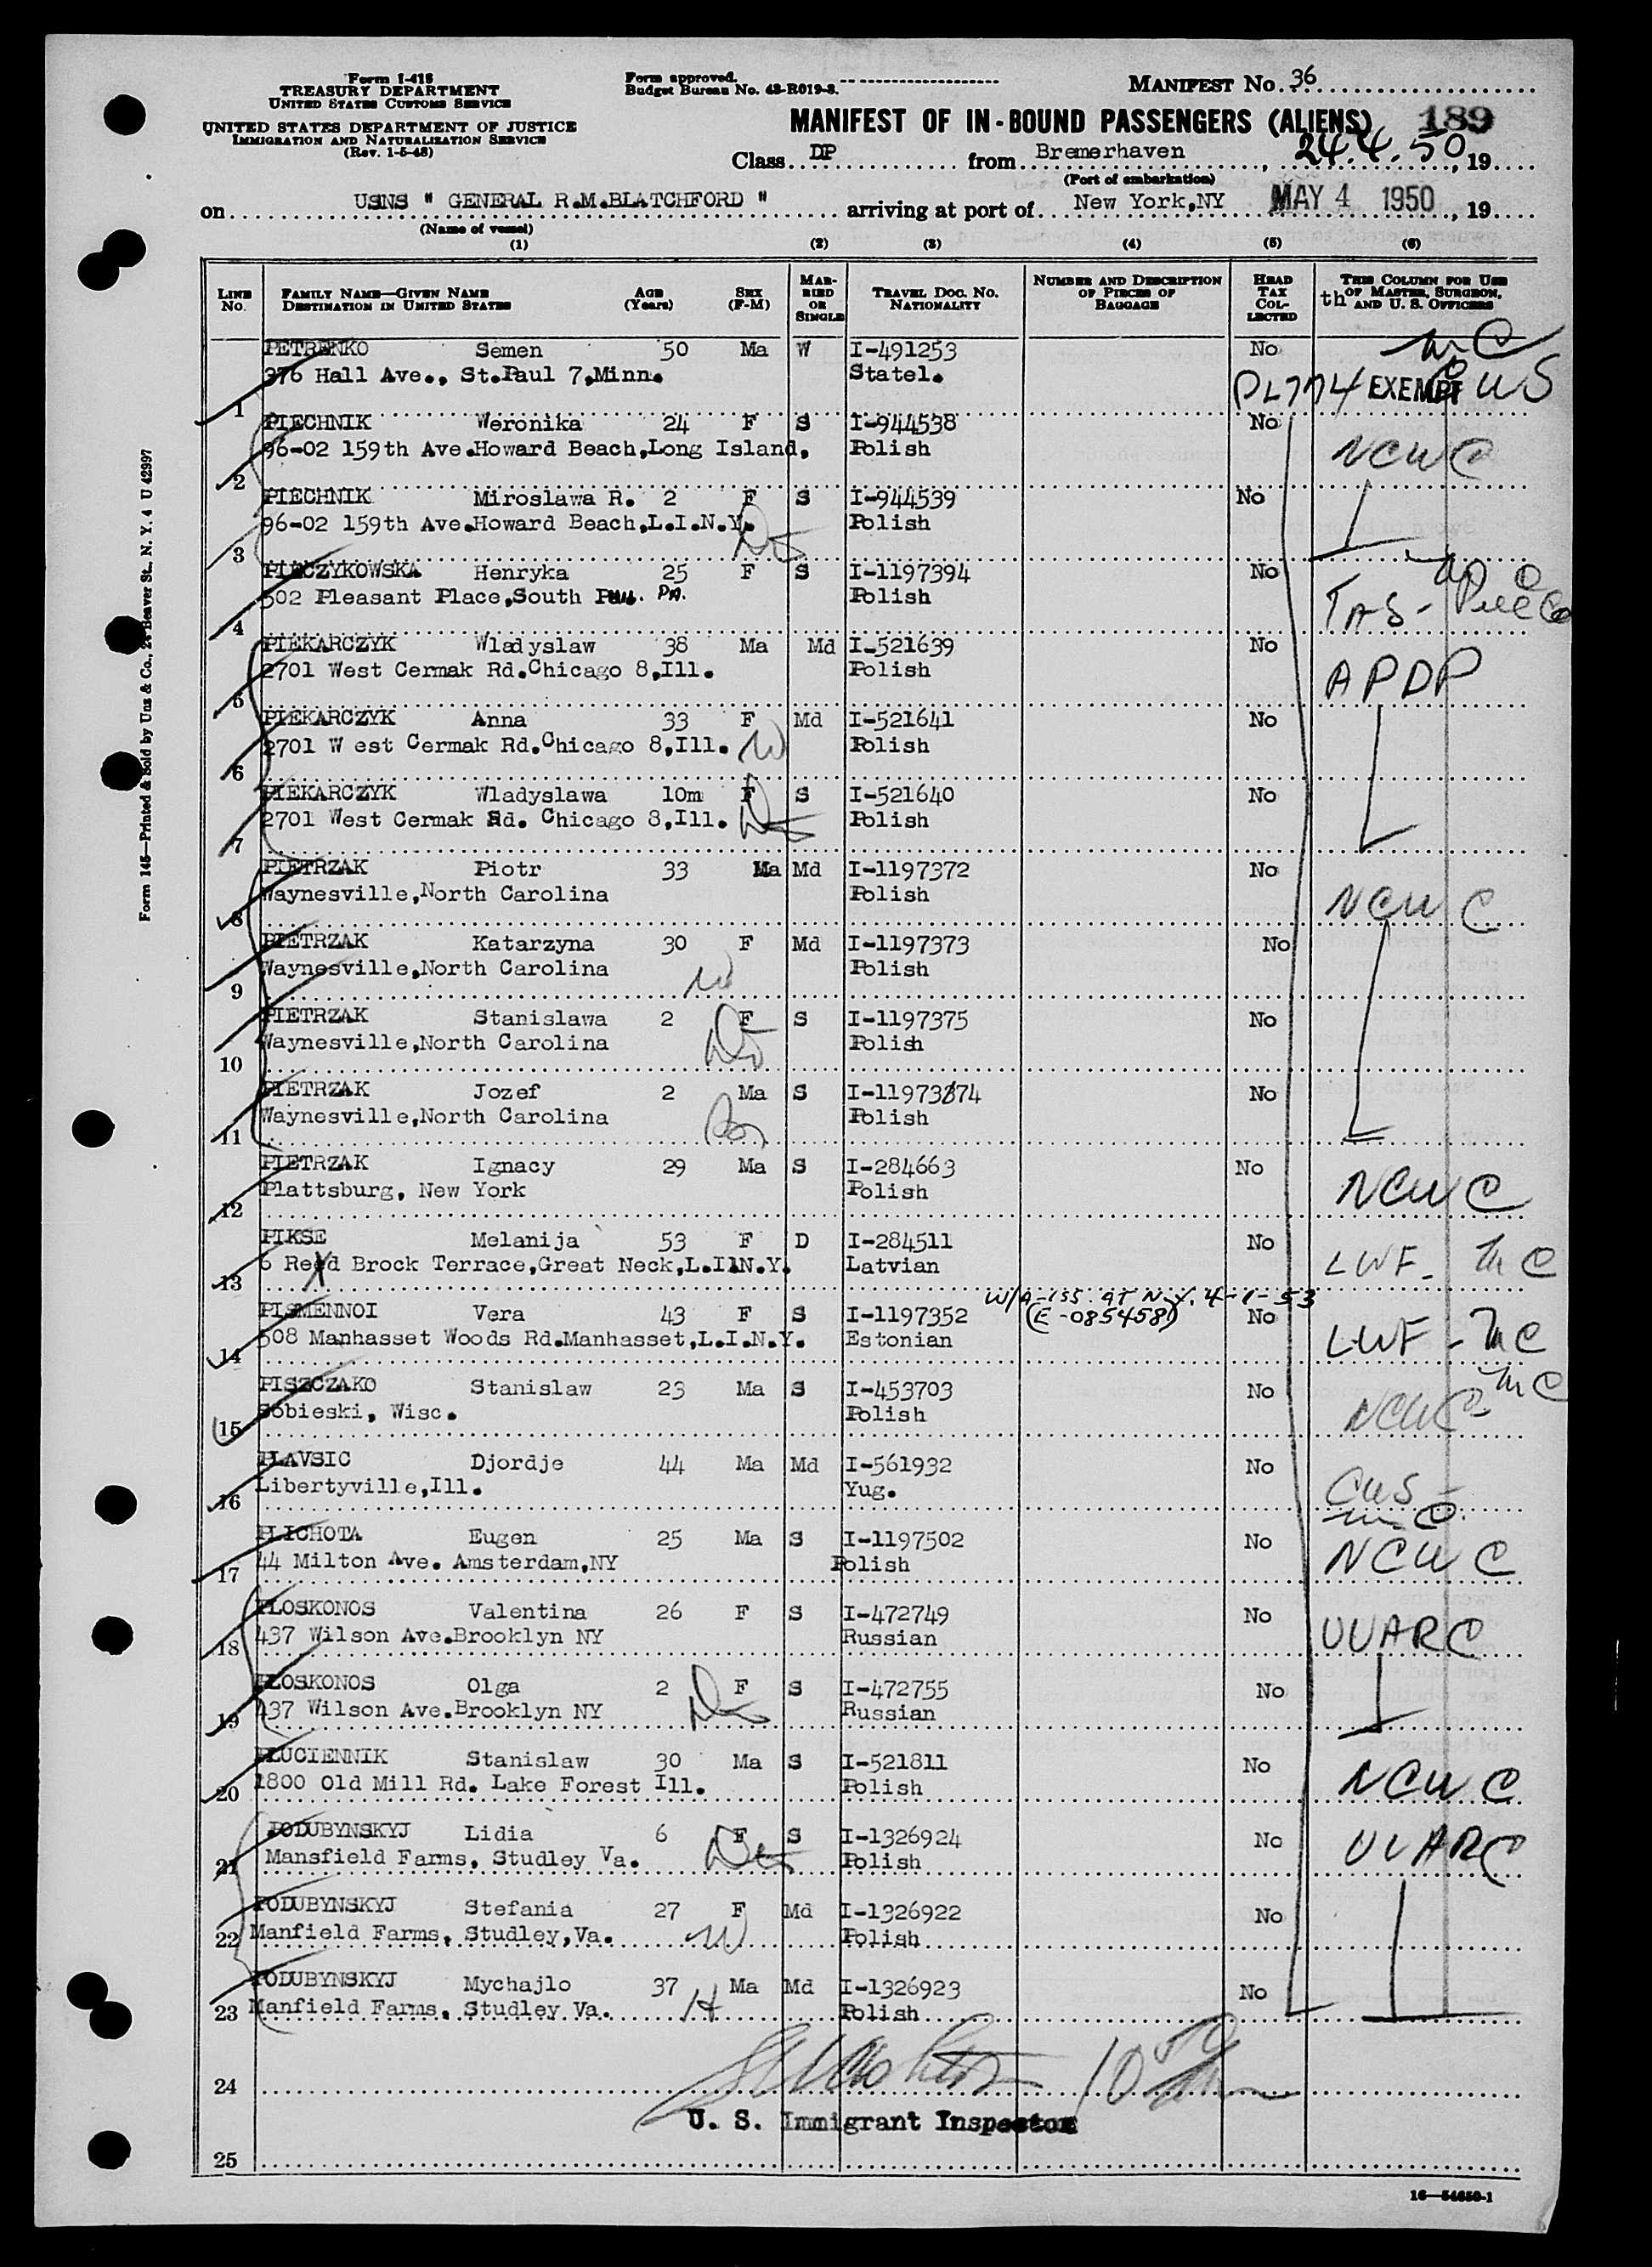 Form I-418
TREASURY DEPARTMENT
UNITED STATES CUSTOMS SERVICE
UNITED STATES DEPARTMENT OF JUSTICE
IMMIGRATION AND NATURALIZATION SERVICE
(Rev. 1-5-48)
Form approved.
Budget Bureau No. 43-R019-3.
MANIFEST No. 36
MANIFEST OF IN-BOUND PASSENGERS (ALIENS) 189
Class DP from Bremerhaven, 24.4.50, 19
(Port of embarkation)
on USNS " GENERAL R.M.BLATCHFORD " arriving at port of New York,NY MAY 4 1950, 19
(Name of vessel)
(1) (2) (3) (4) (5) (6)
LINE No. FAMILY NAME—GIVEN NAME DESTINATION IN UNITED STATES AGE (Years) SEX (F-M) MARRIED OR SINGLE TRAVEL DOC. NO. NATIONALITY NUMBER AND DESCRIPTION OF PIECES OF BAGGAGE HEAD TAX COLLECTED th THIS COLUMN FOR USE OF MASTER, SURGEON, AND U. S. OFFICERS
PETRENKO Semen 50 Ma W I-491253 No
376 Hall Ave., St.Paul 7,Minn. Statel.
1 PL774 EXEMPT
PIECHNIK Weronika 24 F S I-944538 No
96-02 159th Ave.Howard Beach,Long Island, Polish NCWC
2
PIECHNIK Miroslawa R. 2 F S I-944539 No
96-02 159th Ave.Howard Beach,L.I.N.Y. Polish
3
PIECZYKOWSKA Henryka 25 F S I-1197394 No
502 Pleasant Place,South Pa. Polish TAS -
4
PIEKARCZYK Wladyslaw 38 Ma Md I-521639 No
2701 West Cermak Rd.Chicago 8,Ill. Polish APDP
5
PIEKARCZYK Anna 33 F Md I-521641 No
2701 W est Cermak Rd.Chicago 8,Ill. Polish
6
PIEKARCZYK Wladyslawa 10m F S I-521640 No
2701 West Cermak Rd. Chicago 8,Ill. Polish
7
PIETRZAK Piotr 33 Ma Md I-1197372 No
Waynesville,North Carolina Polish NCWC
8
PIETRZAK Katarzyna 30 F Md I-1197373 No
Waynesville,North Carolina Polish
9
PIETRZAK Stanislawa 2 F S I-1197375 No
Waynesville,North Carolina Polish
10
PIETRZAK Jozef 2 Ma S I-1197374 No
Waynesville,North Carolina Polish
11
PIETRZAK Ignacy 29 Ma S I-284663 No
Plattsburg, New York Polish NCWC
12
PIKSE Melanija 53 F D I-284511 No
6 Reed Brock Terrace,Great Neck,L.I.N.Y. Latvian LWF
13
W/A-155 at N.Y. 4-1-53
PISMENNOI Vera 43 F S I-1197352 (E-085458) No
508 Manhasset Woods Rd.Manhasset,L.I.N.Y. Estonian LWF
14
PISZCZAKO Stanislaw 23 Ma S I-453703 No
Sobieski, Wisc. Polish NCWC
15
PLAVSIC Djordje 44 Ma Md I-561932 No
Libertyville,Ill. Yug. CWS
16
PLICHOTA Eugen 25 Ma S I-1197502 No
44 Milton Ave. Amsterdam,NY Polish NCWC
17
PLOSKONOS Valentina 26 F S I-472749 No
437 Wilson Ave.Brooklyn NY Russian UUARC
18
PLOSKONOS Olga 2 F S I-472755 No
437 Wilson Ave.Brooklyn NY Russian
19
PLUCIENNIK Stanislaw 30 Ma S I-521811 No
1800 Old Mill Rd. Lake Forest Ill. Polish NCWC
20
PODUBYNSKYJ Lidia 6 F S I-1326924 No
Mansfield Farms, Studley Va. Polish UUARC
21
PODUBYNSKYJ Stefania 27 F Md I-1326922 No
Manfield Farms, Studley,Va. Polish
22
PODUBYNSKYJ Mychajlo 37 Ma Md I-1326923 No
Manfield Farms, Studley Va. Polish
23
24
U. S. Immigrant Inspector
25
16—54650-1
Form 145—Printed & Sold by Unz & Co., 24 Beaver St., N. Y. 4 U 42997